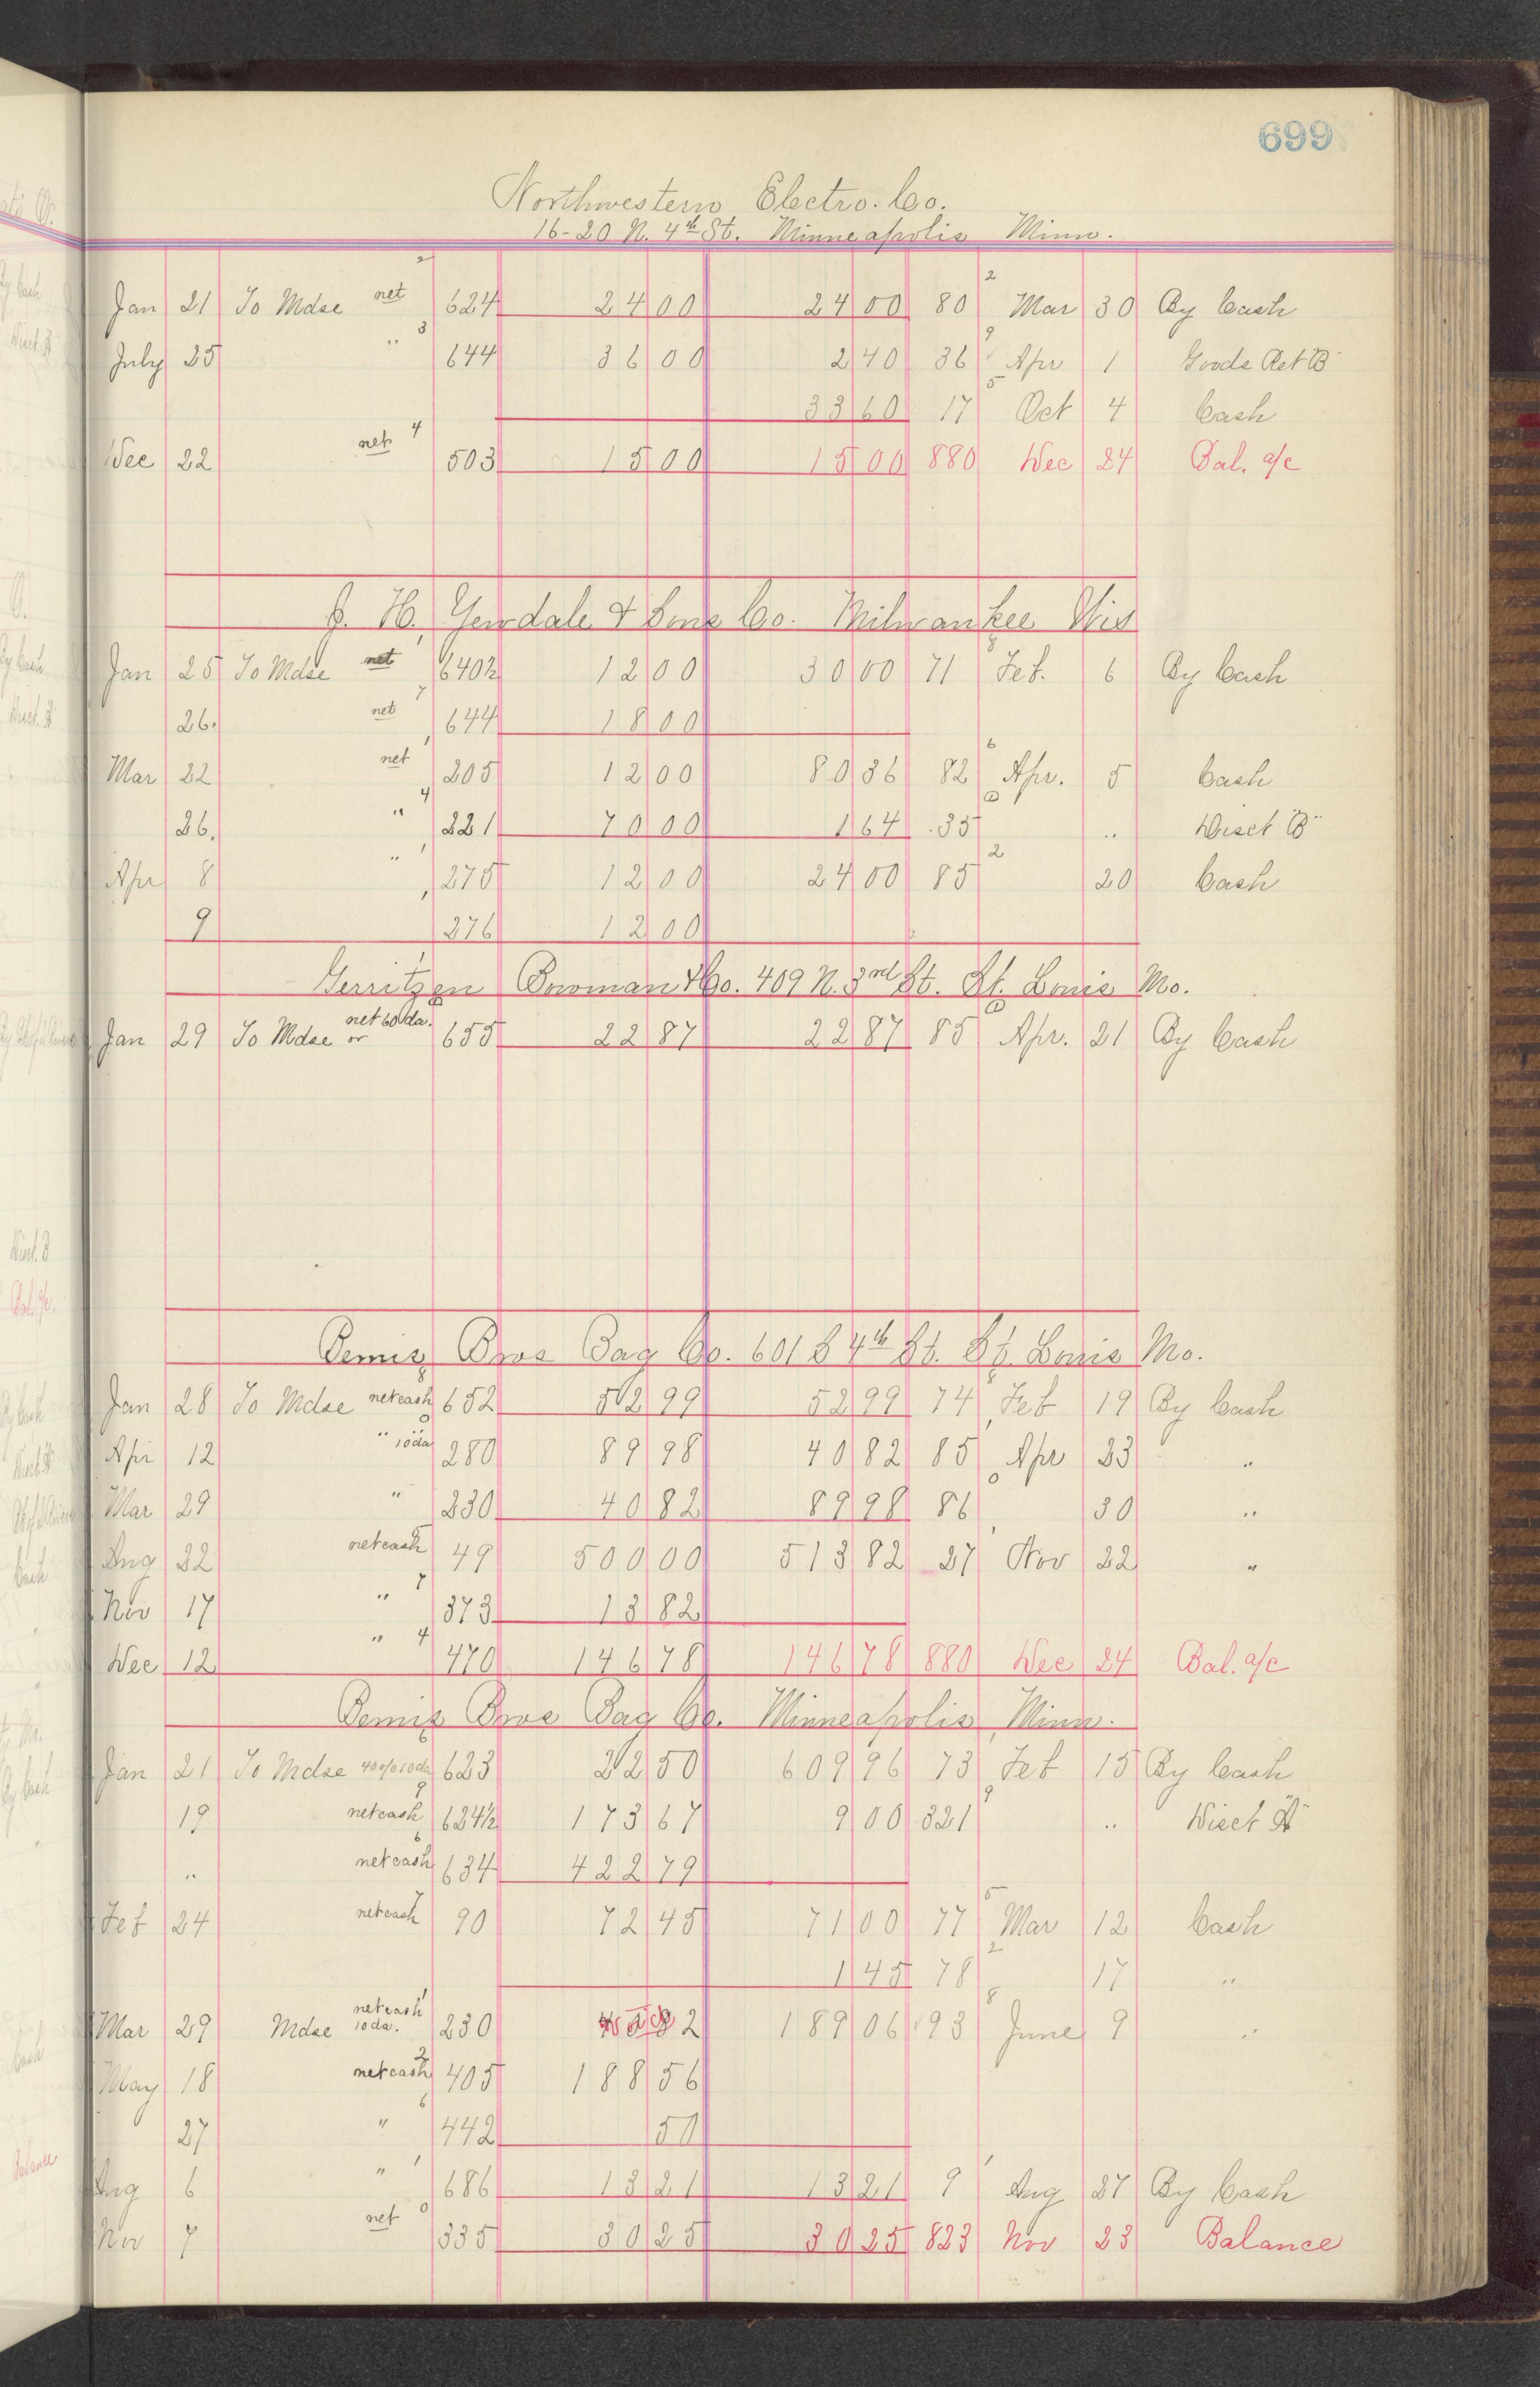 699
Northwestern Electro. Co.
16-20 N. 4th St. Minneapolis Minn.
2 2
Jan 21 To Mdse net 624 24 00 24 00 80 Mar 30 By Cash
3 9
July 25 " 644 36 00 2 40 36 Apr 1 Goods Ret "B"
5
33 60 17 Oct 4 Cash
4
Dec 22 net 503 15 00 15 00 880 Dec 24 Bal. a/c
J. H. Yewdale & Sons Co. Milwaukee Wis
8
Jan 25 To Mdse net 640½ 12 00 30 00 71 Feb. 6 By Cash
7
26. net 644 18 00
1 6
Mar 22 net 205 12 00 80 36 82 Apr. 5 Cash
4
26. " 221 70 00 1 64 35 .. Disct "B"
1 2
Apr 8 " 275 12 00 24 00 85 20 Cash
9 276 12 00
Gerritzen Bowman & Co. 409 N. 3rd St. St. Louis Mo.
Jan 29 To Mdse net 60 da. or 655 22 87 22 87 85 Apr. 21 By Cash
Bemis Bros Bag Co. 601 S 4th St. St. Louis Mo.
8 8
Jan 28 To Mdse net cash 652 52 99 52 99 74 Feb 19 By Cash
0
Apr 12 " 10 da 280 89 98 40 82 85 Apr 23 "
0
Mar 29 " 230 40 82 89 98 86 30 "
Aug 22 net cash 49 500 00 513 82 27 Nov 22 "
7
Nov 17 " 373 13 82
4
Dec 12 " 470 146 78 146 78 880 Dec 24 Bal. a/c
Bemis Bros Bag Co. Minneapolis Minn.
6
Jan 21 To Mdse 40%10da 623 22 50 609 96 73 Feb 15 By Cash
9 9
19 net cash 624½ 173 67 9 00 321 .. Disct "A"
6
.. net cash 634 422 79
7 5
Feb 24 net cash 90 72 45 71 00 77 Mar 12 Cash
2
1 45 78 17 "
1 8
Mar 29 Mdse net cash 10 da. 230 40 82 189 06 93 June 9 "
2
May 18 net cash 405 188 56
6
27 " 442 50
1 1
Aug 6 " 686 13 21 13 21 9 Aug 27 By Cash
0
Nov 7 net 335 30 25 30 25 823 Nov 23 Balance